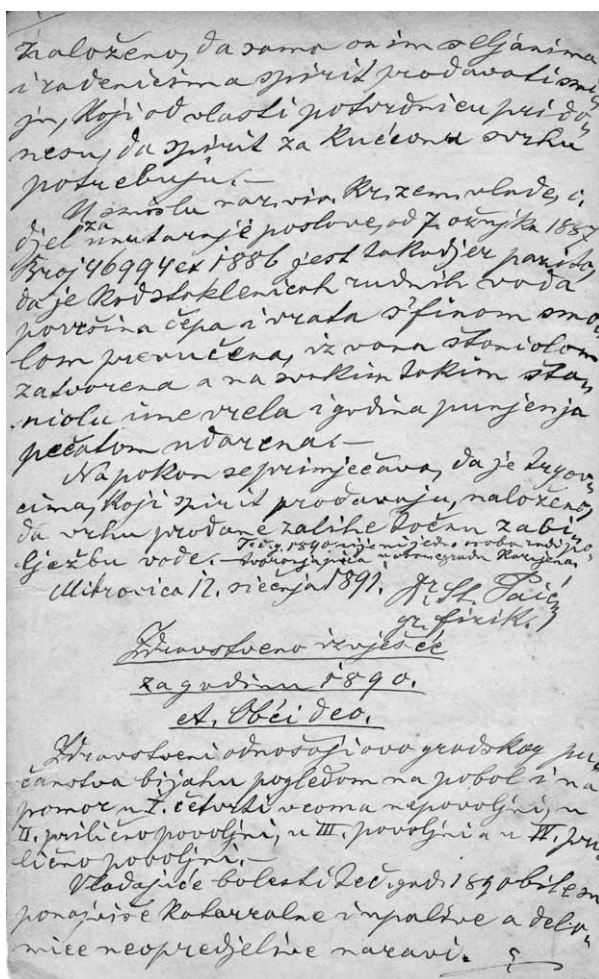 naloženo, da samo onim seljanima
i radenicima spirit prodavati smi-
ju, koji od vlasti potvrdnicu prido-
nesu, da spirit za kućevnu svrhu
potrebuju.—
U smislu nar. vis. kr. zem. vlade, o-
djel za unutarnje poslove, od 7. ožujka 1887
Broj 46994 ex 1886 jest takodjer paziti,
da je kod staklenicah rudnih voda
površina čepa i vrata s'finom smo-
lom prevučena, iz vana staniolom
zatvorena a na svakim takim sta-
niolu ime vrela i godina punjenja
pečatom udarena.—
Napokon se primjećava, da je trgov-
cima, koji spirit prodavaju, naloženo,
da vrhu prodane zalihe točnu zabi-
lježbu vode.— Teč. g. 1890 nije ni jedna osoba radi pa-
tvorenja pića u ovom gradu kažnjena.
Mitrovica 12. siečnja 1891. Dr. St. Paić
gr. fizik.
Zdravstveno izvješće
za godinu 1890.
A. Obći deo.
Zdravstveni odnošaji ovogradskog pu-
čanstva bijahu pogledom na pobol i na
pomor u I. četvrti veoma nepovoljni, u
II. prilično povoljni, u III. povoljni a u IV. pri-
lično povoljni.—
Vladajuće bolesti teč. god. 1890 bile su
ponajviše kataralne i upaline a delo-
mice neopredjeljive naravi.